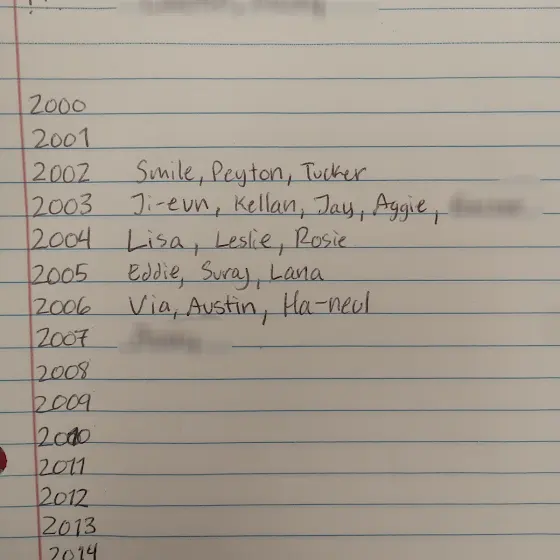 2000
2001
2002 Smile, Peyton, Tucker
2003 Ji-eun, Kellan, Jay, Aggie,
2004 Lisa, Leslie, Rosie
2005 Eddie, Suraj, Lana
2006 Via, Austin, Ha-neul
2007
2008
2009
2010
2011
2012
2013
2014